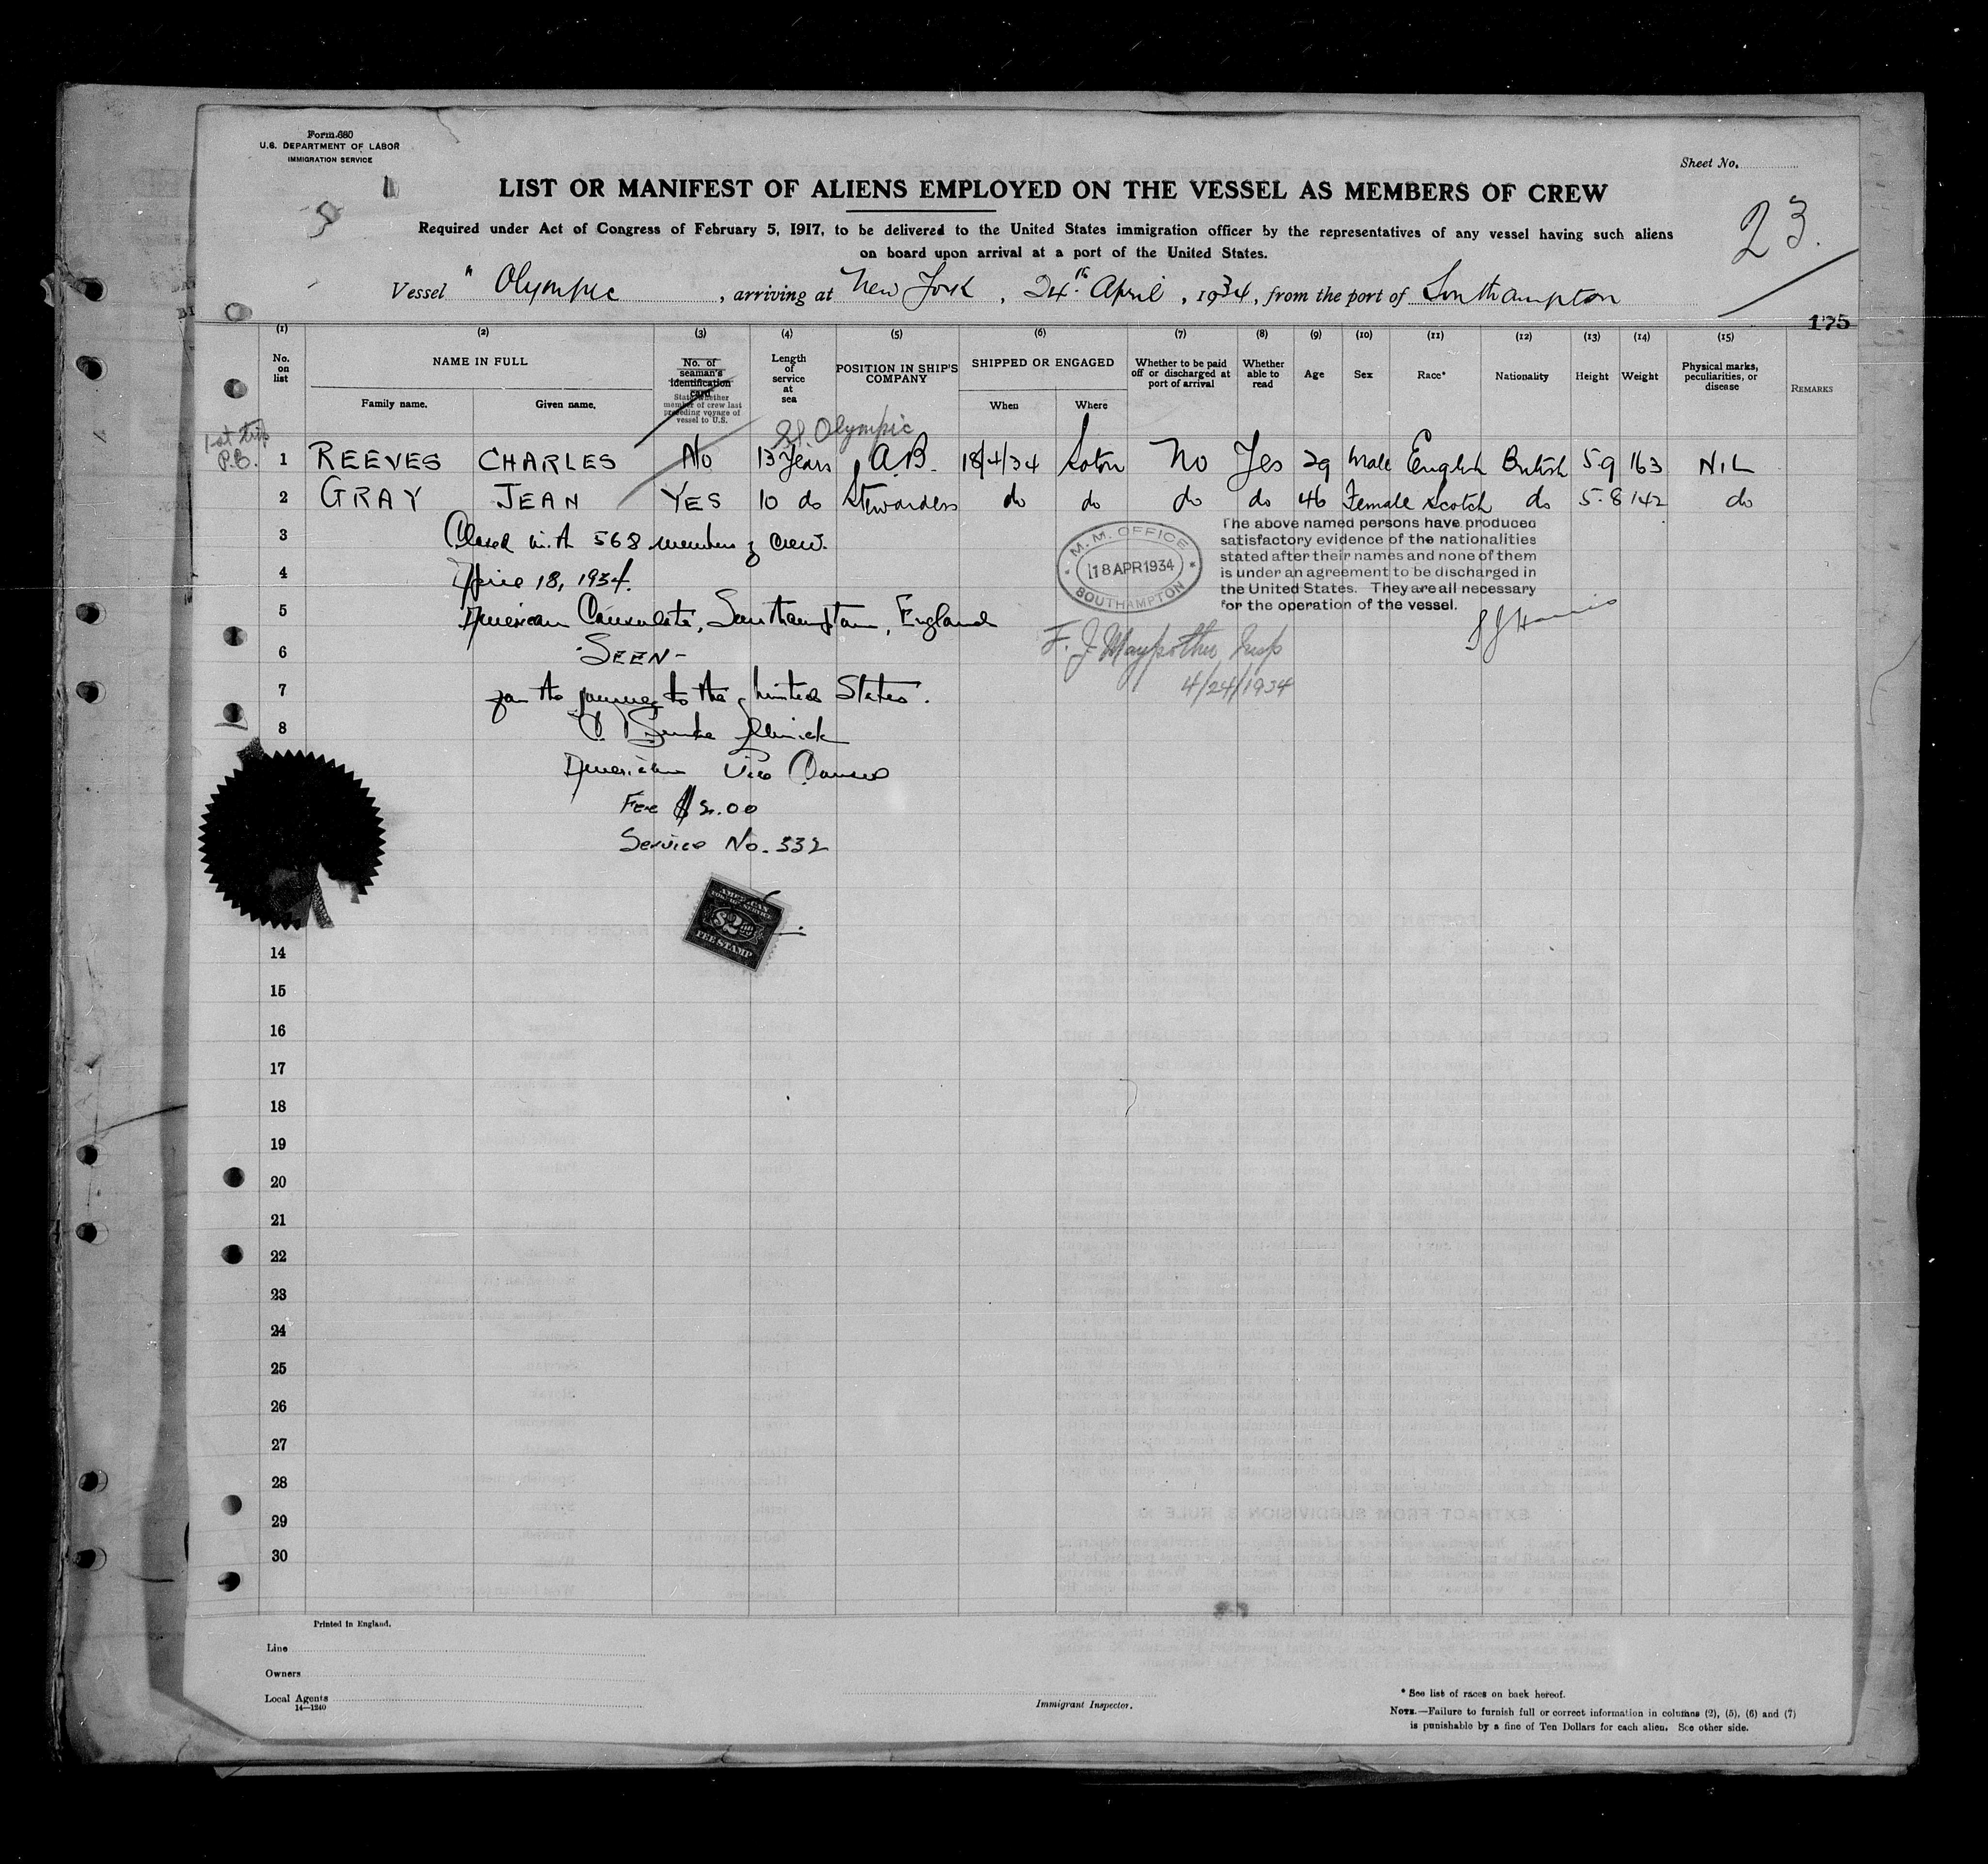 Form 680
U.S. DEPARTMENT OF LABOR
IMMIGRATION SERVICE
Sheet No.
23.
LIST OR MANIFEST OF ALIENS EMPLOYED ON THE VESSEL AS MEMBERS OF CREW
Required under Act of Congress of February 5, 1917, to be delivered to the United States immigration officer by the representatives of any vessel having such aliens
on board upon arrival at a port of the United States.
Vessel " Olympic , arriving at New York , 24th April , 1934, from the port of Southampton
175
(1) (2) (3) (4) (5) (6) (7) (8) (9) (10) (11) (12) (13) (14) (15)
No. on list
NAME IN FULL
Family name. Given name.
No. of seaman's identification card
State whether member of crew last preceding voyage of vessel to U.S.
Length of service at sea
POSITION IN SHIP'S COMPANY
SHIPPED OR ENGAGED
When Where
Whether to be paid off or discharged at port of arrival
Whether able to read
Age Sex Race* Nationality Height Weight
Physical marks, peculiarities, or disease
REMARKS
Olympic
1st trip
P.B.
1 REEVES CHARLES No 13 Years A.B. 18/4/34 Soton No Yes 29 Male English British 5.9 163 NIL
2 GRAY JEAN YES 10 do Stewardess do do do do 46 Female Scotch do 5.8 142 do
3 Closed with 568 members of crew.
4 April 18, 1934.
5 American Consulate, Southampton, England
6 -SEEN-
7 for the journey to the United States.
8
American Vice Consul
Fee $2.00
Service No. 332
M.M. OFFICE
18 APR 1934
SOUTHAMPTON
The above named persons have produced
satisfactory evidence of the nationalities
stated after their names and none of them
is under an agreement to be discharged in
the United States. They are all necessary
for the operation of the vessel.
F. J. Insp
4/24/1934
AMERICAN
FOREIGN SERVICE
$2.00
FEE STAMP
14
15
16
17
18
19
20
21
22
23
24
25
26
27
28
29
30
Printed in England.
Line
Owners
Local Agents
14—1240
Immigrant Inspector.
* See list of races on back hereof.
NOTE.—Failure to furnish full or correct information in columns (2), (5), (6) and (7)
is punishable by a fine of Ten Dollars for each alien. See other side.